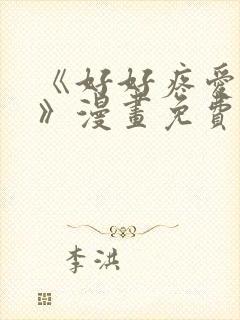 《好好疼爱
》漫畫免費
李洪